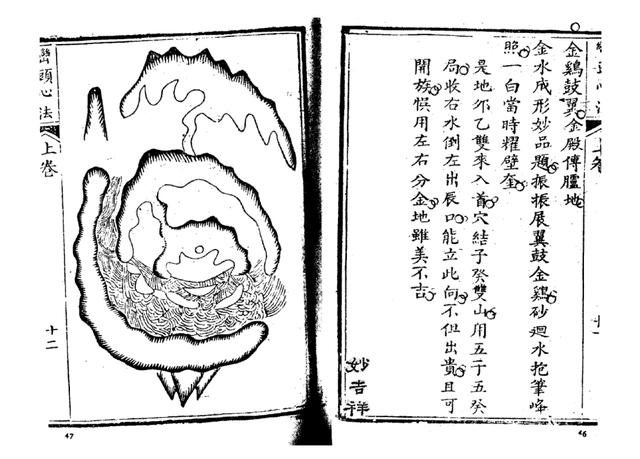 金鷄鼓翼金殿傳臚地
金水成形妙品題振振展翼鼓金鷄砂迴水抱筆峰
照一白當時耀壁奎
是地邜乙雙來入首穴結子癸雙山用五子五癸
局收右水倒左出辰口能立此向不但出貴且可
開族悞用左右分金地雖美不吉
妙吉祥
46
巒頭心法
上卷
十二
47